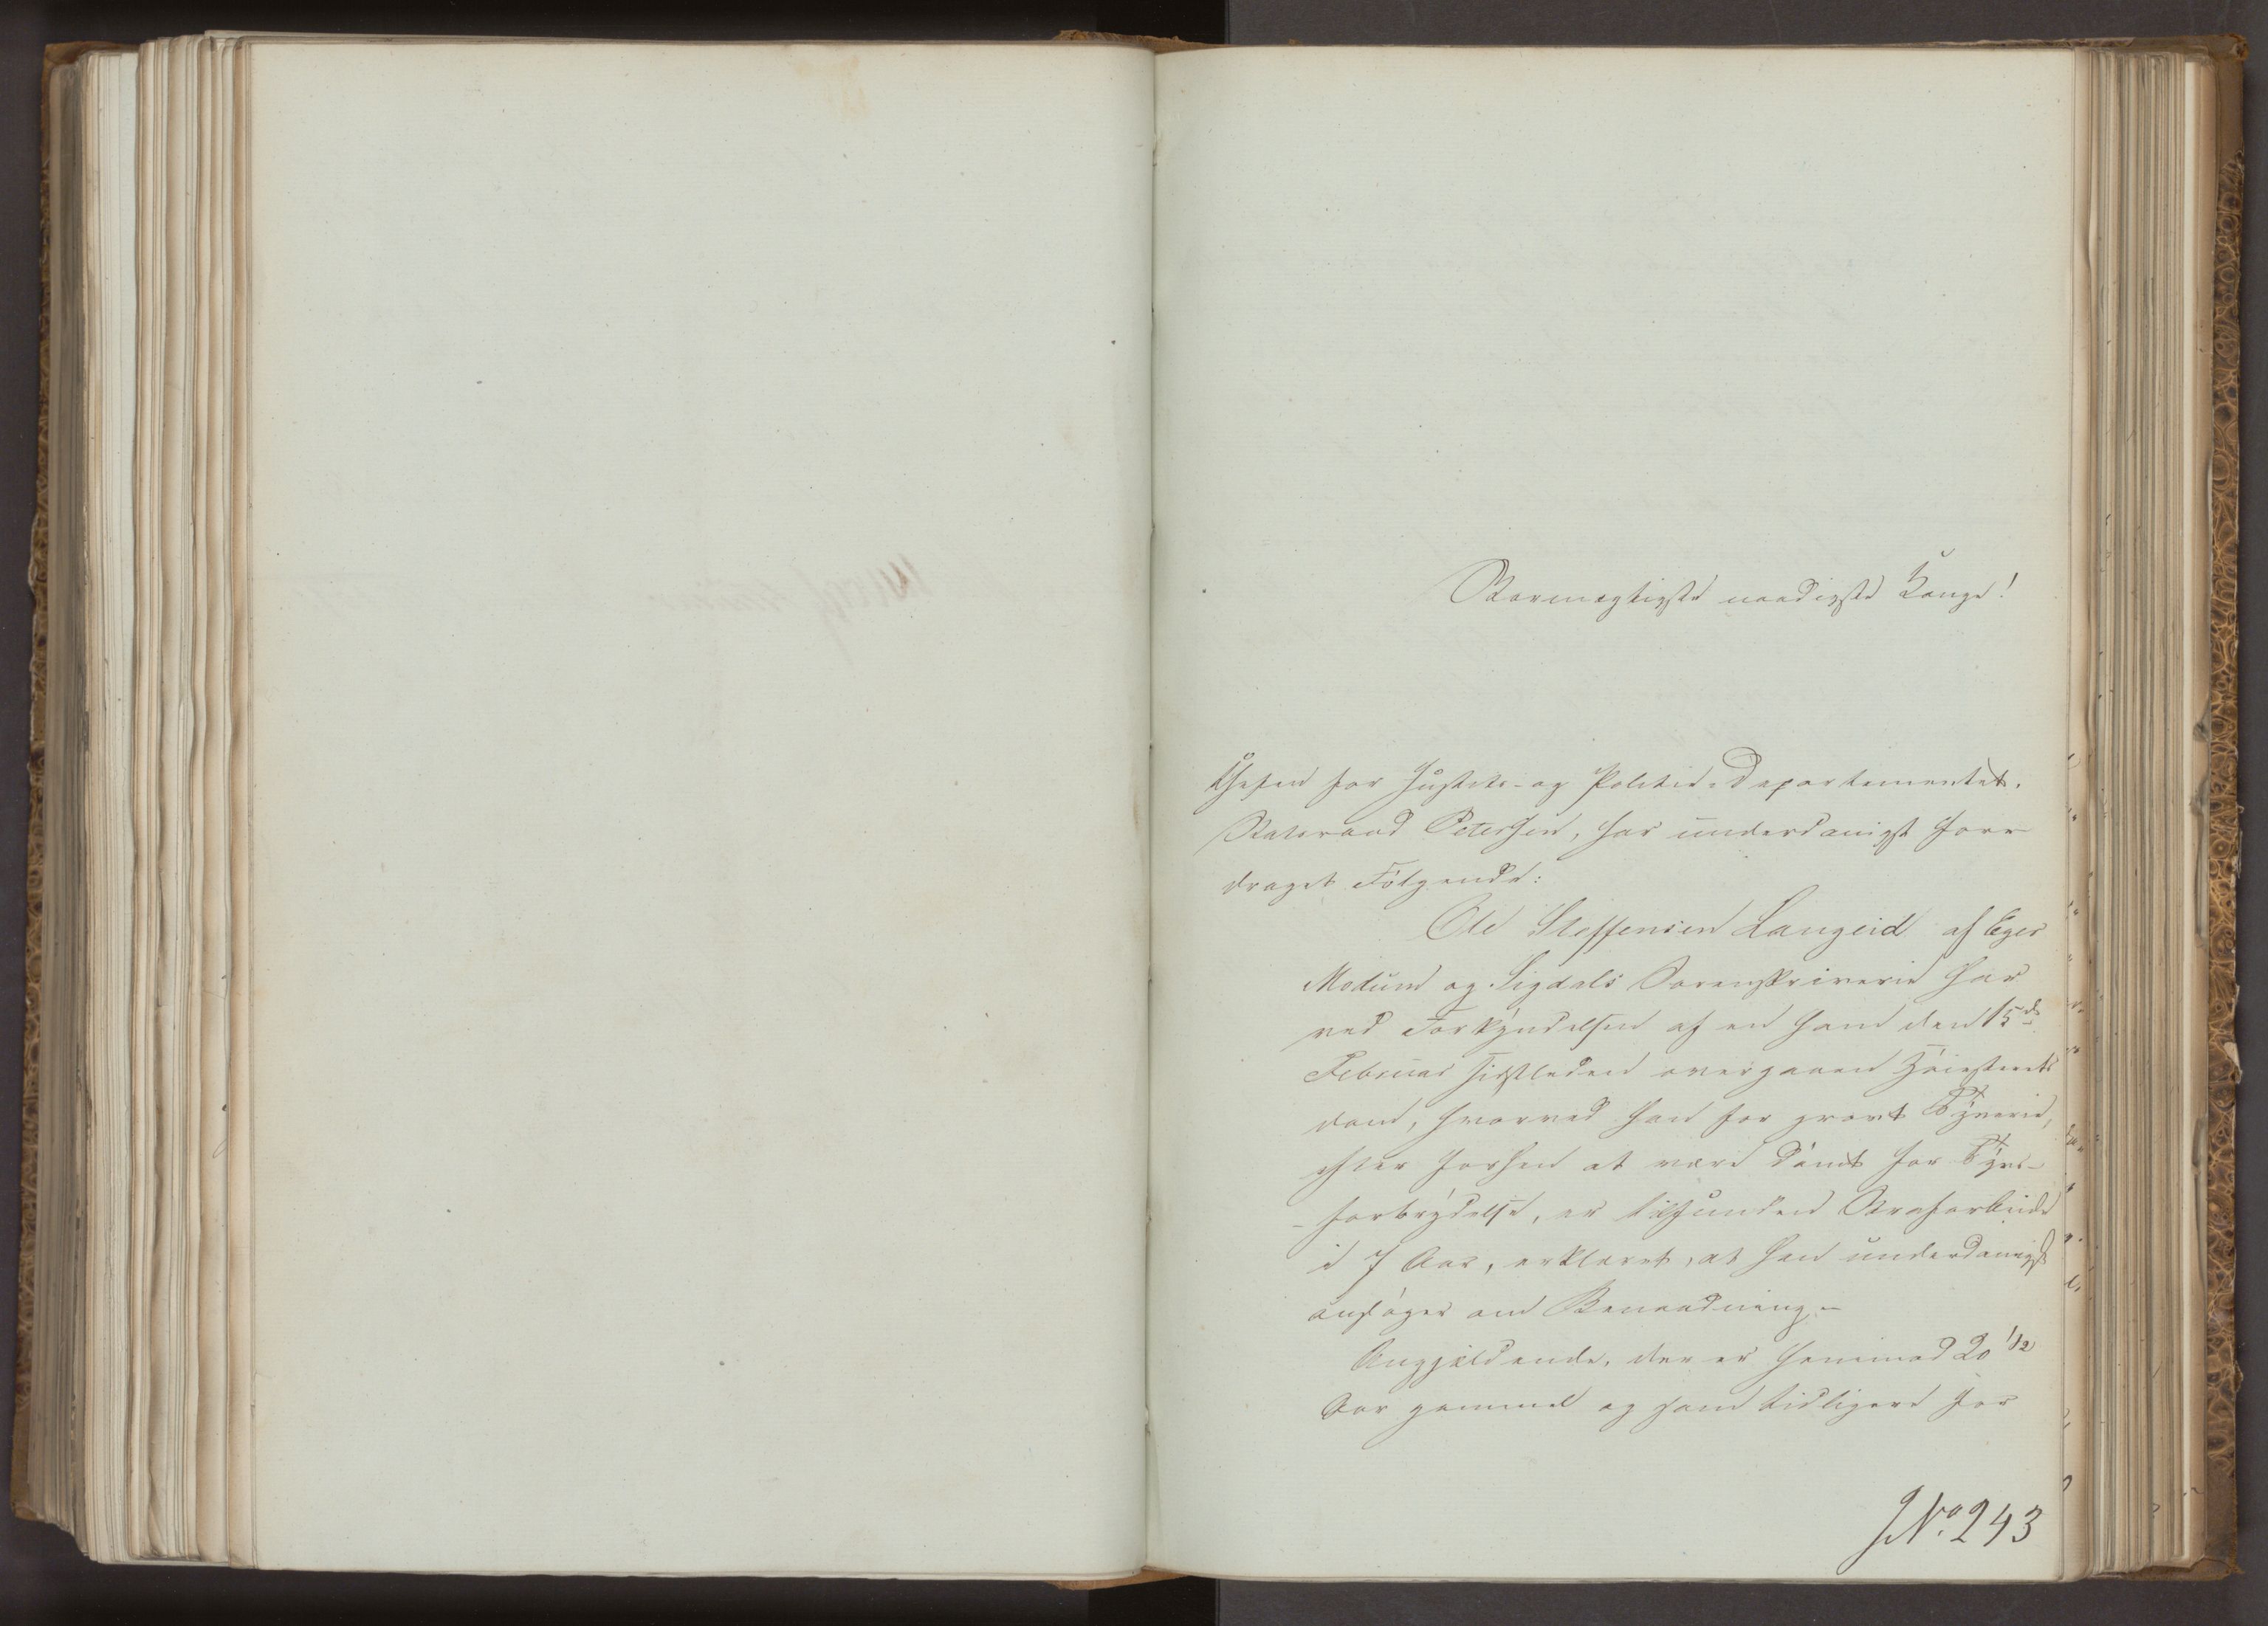 Stormægtigste naadigste Konge!
Chefen for Justits- og Politie-Departementet,
Statsraad Petersen, har underdanigst fore-
draget Følgende:
Ole Steffensen Langeid af Eger
Modum og Sigdals Sorenskriverie har
ved Forkyndelsen af en ham den 15de
Februar sidstleden overgaaen Høiesterets
dom, hvorved han for grovt Tyverie,
efter forhen at være dömt for Tyvs-
forbrydelse, er tilfunden Strafarbeide
i 7 Aar, erklæret, at han underdanigst
ansøger om Benaadning.-
Angjældende, der er henimod 20 1/2
Aar gammel og som tidligere har
JNo. 243